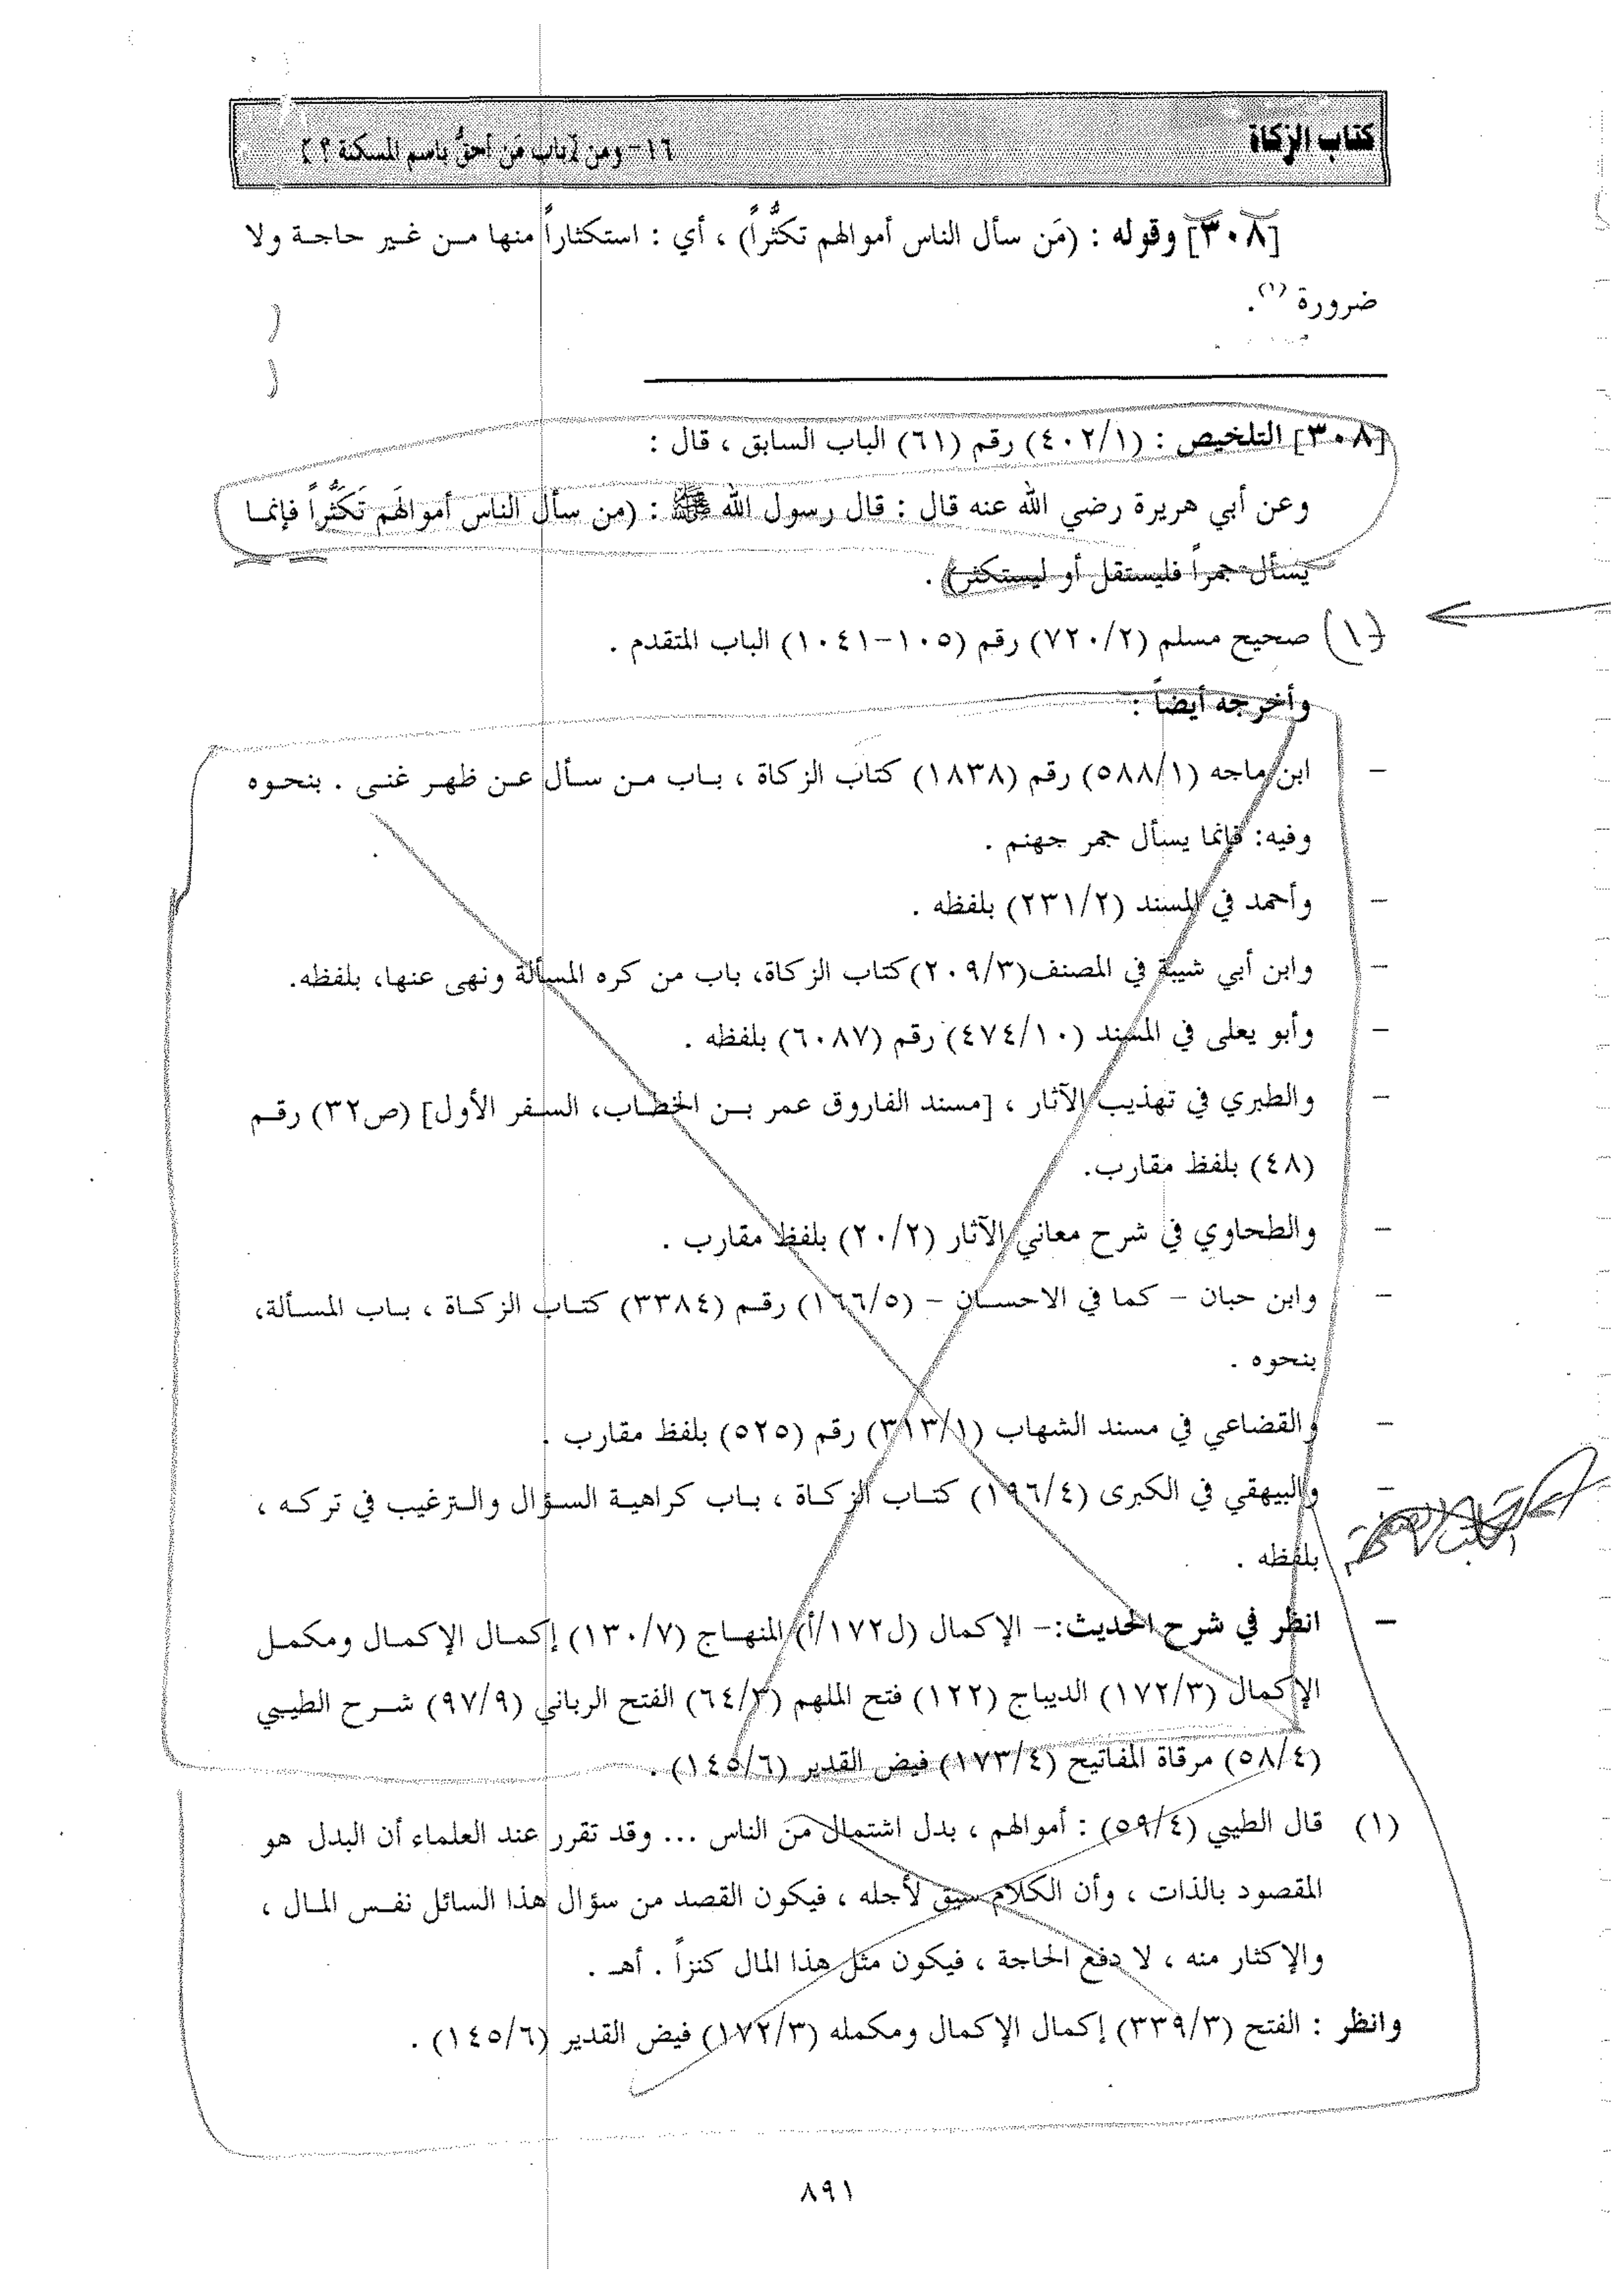 كتاب الزكاة
١٦- ومن [باب مَن أحقُّ باسم المسكنة ؟]
[٣٠٨] وقوله : (مَن سأل الناس أموالهم تكثُّراً) ، أي : استكثاراً منها من غير حاجة ولا
ضرورة (١).
[٣٠٨] التلخيص : (٤٠٢/١) رقم (٦١) الباب السابق ، قال :
وعن أبي هريرة رضي الله عنه قال : قال رسول الله ﷺ : (من سأل الناس أموالَهم تَكَثُّراً فإنما
يسأل جمراً فليستقل أو ليستكثر) .
(١) صحيح مسلم (٧٢٠/٢) رقم (١٠٥-١٠٤١) الباب المتقدم .
وأخرجه أيضاً :
- ابن ماجه (٥٨٨/١) رقم (١٨٣٨) كتاب الزكاة ، باب من سأل عن ظهر غنى . بنحوه
وفيه: فإنما يسأل جمر جهنم .
- وأحمد في المسند (٢٣١/٢) بلفظه .
- وابن أبي شيبة في المصنف(٢٠٩/٣)كتاب الزكاة، باب من كره المسألة ونهى عنها، بلفظه.
- وأبو يعلى في المسند (٤٧٤/١٠) رقم (٦٠٨٧) بلفظه .
- والطبري في تهذيب الآثار ، [مسند الفاروق عمر بن الخطاب، السفر الأول] (ص٣٢) رقم
(٤٨) بلفظ مقارب.
- والطحاوي في شرح معاني الآثار (٢٠/٢) بلفظ مقارب .
- وابن حبان - كما في الاحسان - (١٦٦/٥) رقم (٣٣٨٤) كتاب الزكاة ، باب المسألة،
بنحوه .
- والقضاعي في مسند الشهاب (٣١٣/١) رقم (٥٢٥) بلفظ مقارب .
- والبيهقي في الكبرى (١٩٦/٤) كتاب الزكاة ، باب كراهية السؤال والترغيب في تركه ،
بلفظه .
- انظر في شرح الحديث:- الإكمال (ل١٧٢/أ) المنهاج (١٣٠/٧) إكمال الإكمال ومكمل
الإكمال (١٧٢/٣) الديباج (١٢٢) فتح الملهم (٦٤/٣) الفتح الرباني (٩٧/٩) شرح الطيبي
(٥٨/٤) مرقاة المفاتيح (١٧٣/٤) فيض القدير (١٤٥/٦) .
(١) قال الطيبي (٥٩/٤) : أموالهم ، بدل اشتمال من الناس ... وقد تقرر عند العلماء أن البدل هو
المقصود بالذات ، وأن الكلام سيق لأجله ، فيكون القصد من سؤال هذا السائل نفس المال ،
والإكثار منه ، لا دفع الحاجة ، فيكون مثل هذا المال كنزاً . أهـ .
وانظر : الفتح (٣٣٩/٣) إكمال الإكمال ومكمله (١٧٢/٣) فيض القدير (١٤٥/٦) .
٨٩١